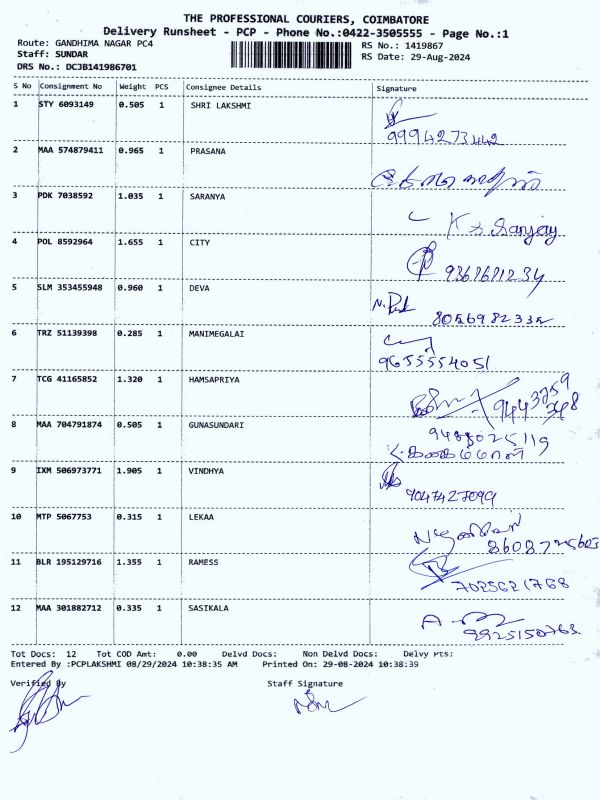 THE PROFESSIONAL COURIERS, COIMBATORE
Delivery Runsheet - PCP - Phone No.:0422-3505555 - Page No.:1
Route: GANDHIMA NAGAR PC4 RS No.: 1419867
Staff: SUNDAR RS Date: 29-Aug-2024
DRS No.: DCJB141986701
S No Consignment No Weight PCS Consignee Details Signature
1 STY 6093149 0.505 1 SHRI LAKSHMI
9994273442
2 MAA 574879411 0.965 1 PRASANA
3 PDK 7038592 1.035 1 SARANYA
K S Sanjay
4 POL 8592964 1.655 1 CITY
5 SLM 353455948 0.960 1 DEVA
6 TRZ 51139398 0.285 1 MANIMEGALAI
9655554051
7 TCG 41165852 1.320 1 HAMSAPRIYA
8 MAA 704791874 0.505 1 GUNASUNDARI
9488025119
9 IXM 506973771 1.905 1 VINDHYA
10 MTP 5067753 0.315 1 LEKAA
11 BLR 195129716 1.355 1 RAMESS
12 MAA 301882712 0.335 1 SASIKALA
Tot Docs: 12 Tot COD Amt: 0.00 Delvd Docs: Non Delvd Docs: Delvy Pts:
Entered By :PCPLAKSHMI 08/29/2024 10:38:35 AM Printed On: 29-08-2024 10:38:39
Verified By Staff Signature